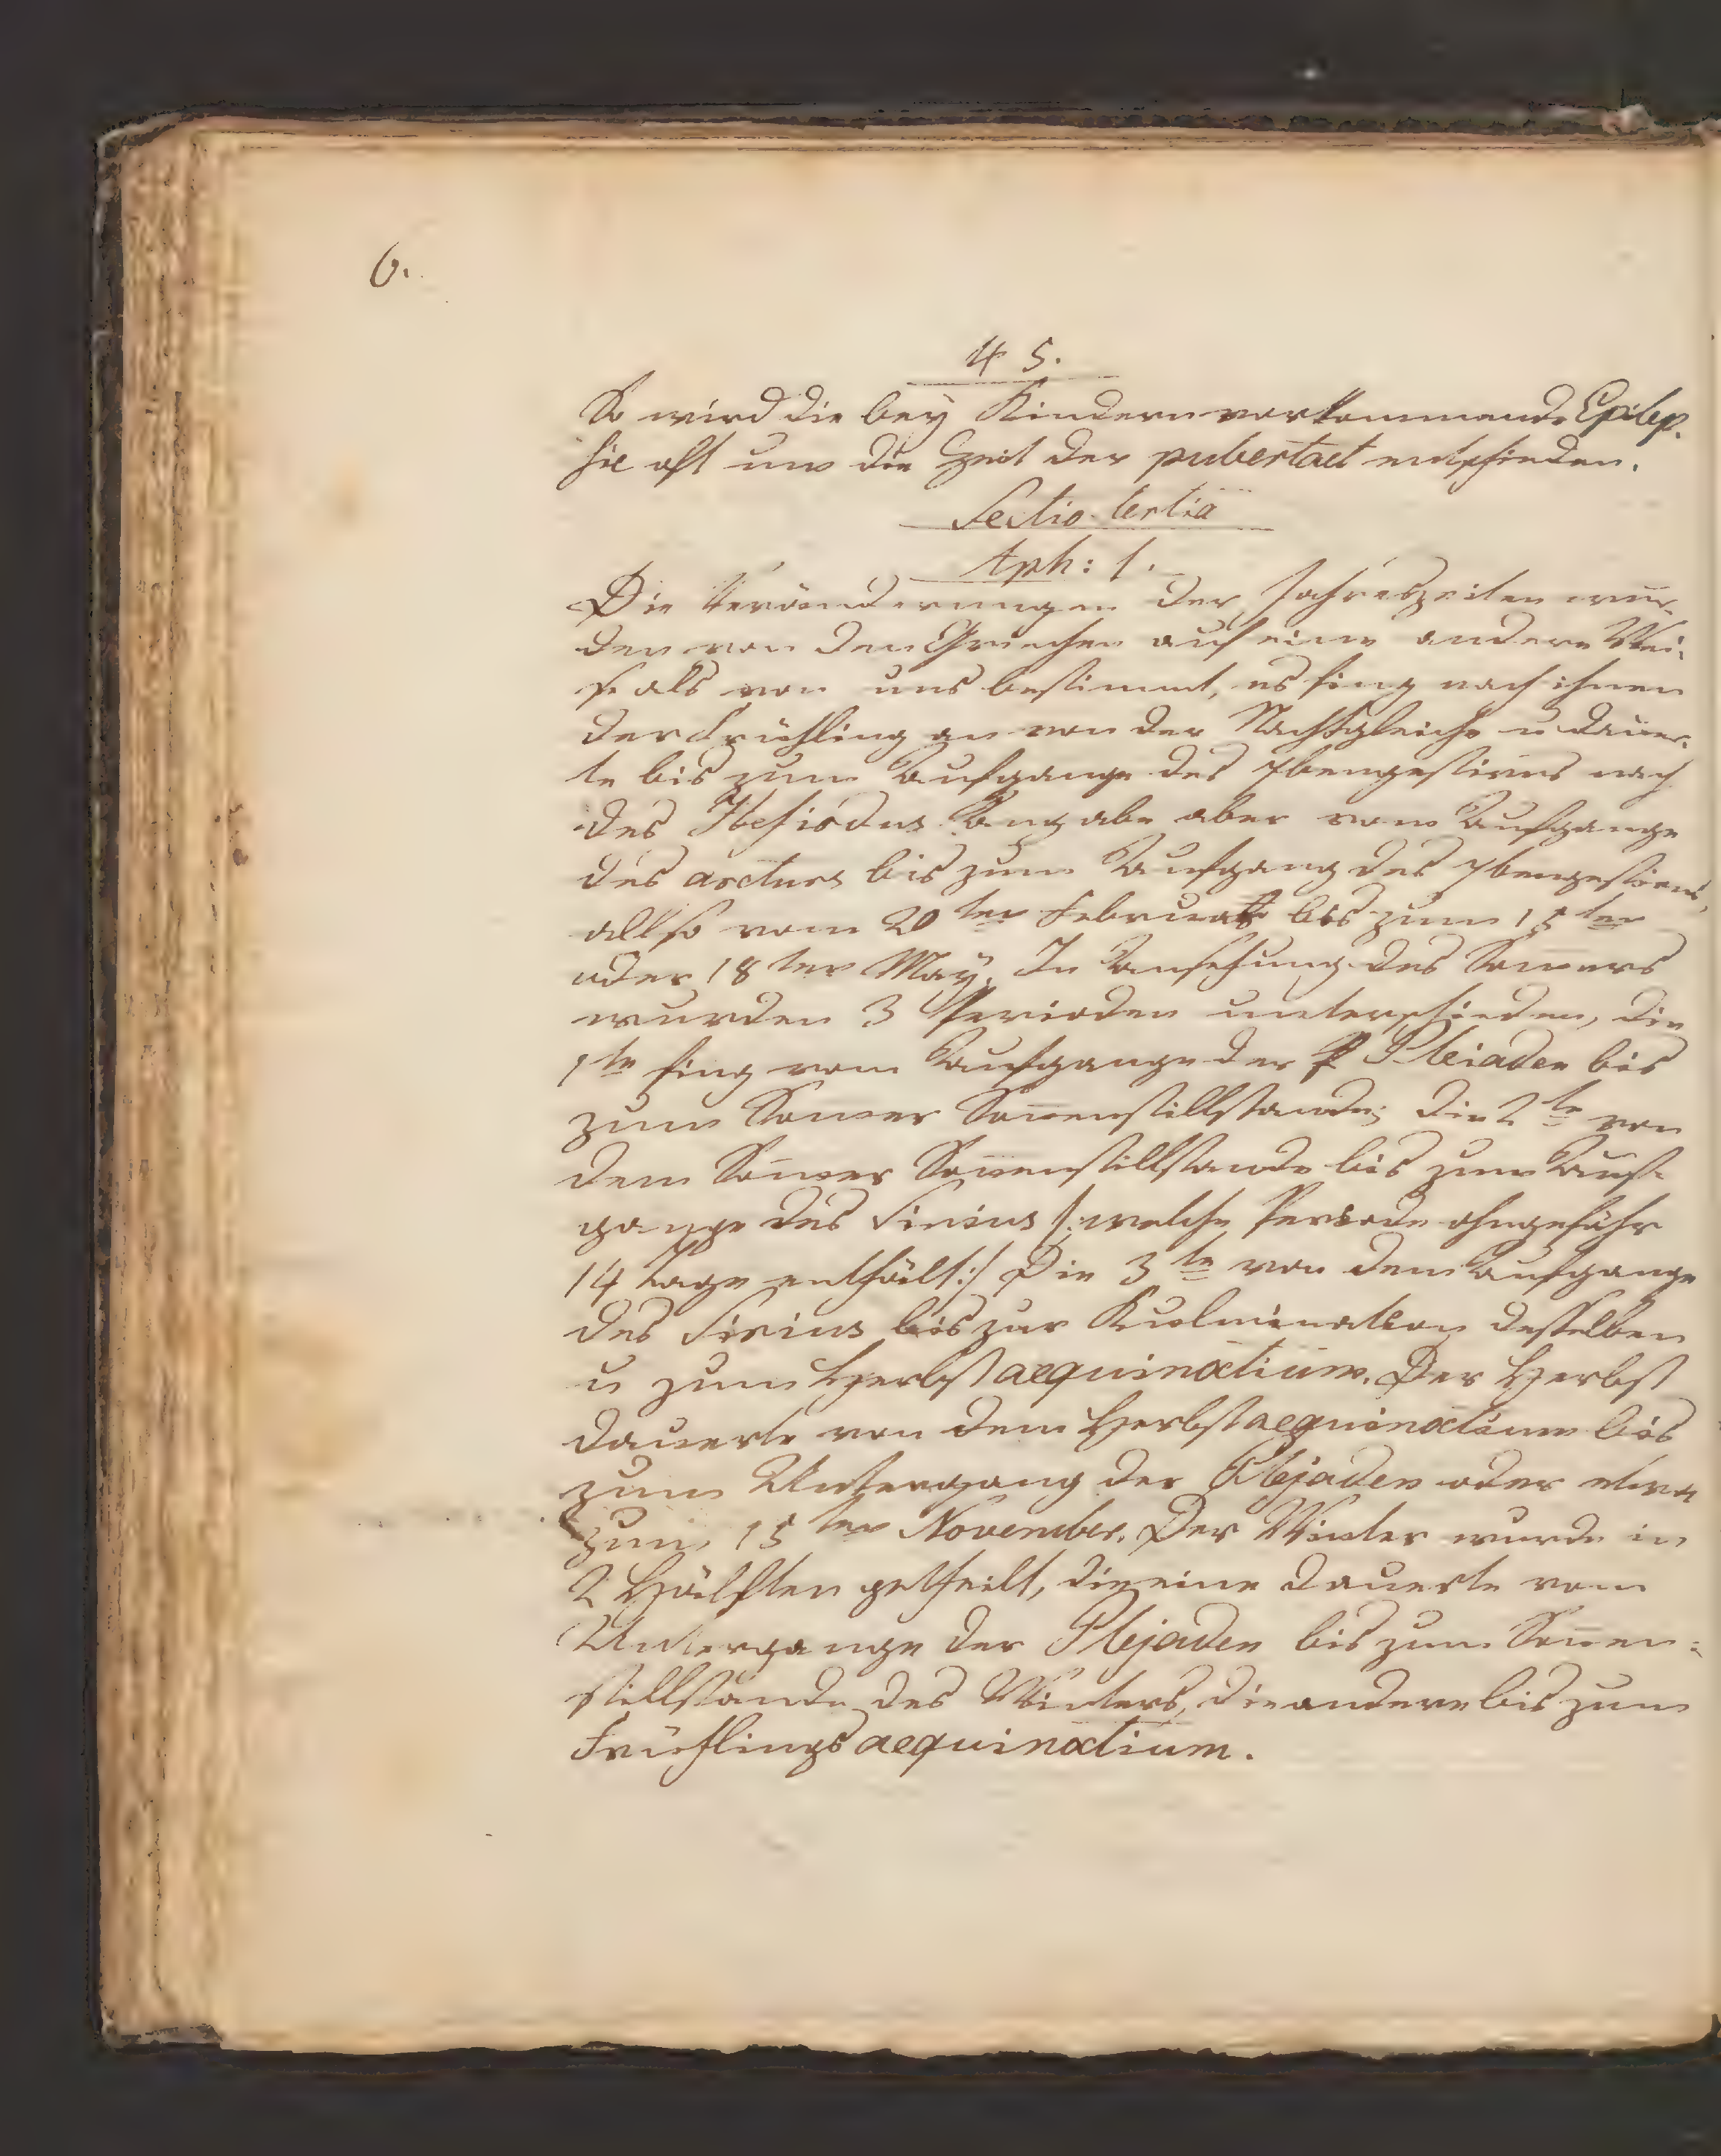 6.
45.
So wird die bey Kindern vorkommende Epilep-
sie oft um die Zeit der pubertaet entschieden.
Sectio tertia
Aph: 1.
Die Veränderungen der Jahreszeiten wur-
den von den Griechen auf eine andere Wei-
se als von uns bestimmt, es fing nach ihnen
der Frühling an von der Nachtgleiche u dauer-
te bis zum Aufgange des 7bengestirns nach
des Hesiodus Angabe aber vom Aufgange
des arcturs bis zum Aufgang des 7bengestirns,
allso vom 20ten Februar bis zum 15ten
oder 18ten May. In Ansehung des Som̅ers
wurden 3 Perioden unterschieden, die
1te fing vom Aufgange der P Pleiaden bis
zum Som̅er Son̅enstillstande; die 2te von
dem Som̅er Son̅enstillstande bis zum Auf-
gange des Sirius /: welche Periode ohngefähr
14 Tage enthält :/ Die 3te von dem Aufgange
des Sirius bis zur Kulmination desselben
u zum Herbstaequinoctium. Der Herbst
dauerte von dem Herbstaequinoctium bis
zum Untergang der Plejaden oder etwa
zum 15ten November. Der Winter wurde in
2 Hälften getheilt, die eine dauerte vom
Untergange der Plejaden bis zum Son̅en-
stillstande des Winters, die andere bis zum
Frühlingsaequinoctium.